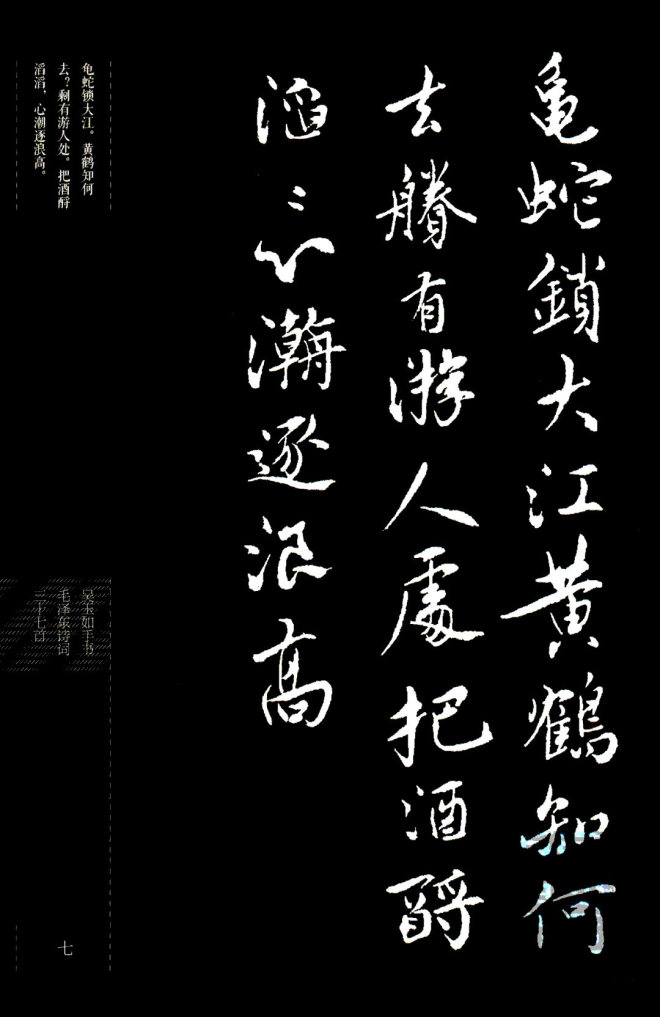 龜蛇鎖大江黃鶴知何
去賸有游人處把酒酹
滔〻心潮逐浪高
龟蛇锁大江。黄鹤知何
去？剩有游人处。把酒酹
滔滔，心潮逐浪高。
吴玉如手书
毛泽东诗词
三十七首
七